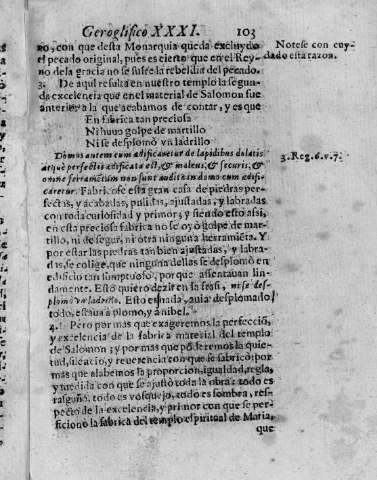 Geroglifico XXXI. 103
no, con que desta Monarquia queda excluydo
el pecado original, pues es cierto que en el Rey-
no de la gracia no se sufre la rebeldia del pecado.
Notese con cuy-
dado esta razon.
3. De aqui resulta en nuestro templo la segun-
da excelencia que en el material de Salomon fue
anterior a la que acabamos de contar, y es que
En fabrica tan preciosa
Ni huuo golpe de martillo
Ni se desplomò vn ladrillo
Domus autem cum ædificaretur de lapidibus dolatis
atque perfectis ædificata est, & maleus, & securis, &
omne ferramẽtum non sunt audita in domo cum ædifi-
caretur. Fabricose esta gran casa de piedras per-
3. Reg. 6. v. 7.
fectas, y acabadas, pulidas, ajustadas, y labradas
con toda curiosidad y primor; y siendo esto assi,
en esta preciosa fabrica no se oyò golpe de mar-
tillo, ni de segur, ni otra ninguna herramiẽta. Y
por estar las piedras tan bien ajustadas, y labra-
das, se colige, que ninguna dellas se desplomò en
edificio tan sumptuoso, por que assentauan lin-
damente. Esto quiero dezir en la frasi, ni se des-
plomò vn ladrillo. Esto es nada, auia desplomado
todo, estaua a plomo, y a nibel.
4. Pero por mas que exageremos la perfecciõ,
y excelencia de la fabrica material del templo
de Salomon; y por mas que põderemos la quie-
tud, silẽcio, y reuerencia con que se fabricò; por
mas que alabemos la proporcion, igualdad, regla,
y medida con que se ajustò toda la obra: todo es
rasguño, todo es vosquejo, todo es sombra, res-
pecto de la excelencia, y primor con que se per-
ficionò la fabrica del templo espiritual de Maria,
que